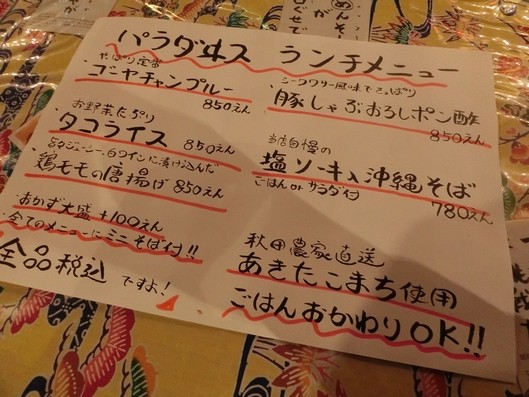 パラダヰス ランチメニュー
やっぱり定番
ゴーヤチャンプルー
850えん
お野菜たっぷり
タコライス
850えん
鶏モモの唐揚げ 850えん
おかず大盛 +100えん
全てのメニューにミニそば付!!
全品税込ですよ!
シークワサー風味でさっぱり
豚しゃぶおろしポン酢
850えん
当店自慢の
塩ソーキ入沖縄そば
ごはん or サラダ付
780えん
秋田農家直送
あきたこまち使用
ごはんおかわりOK!!